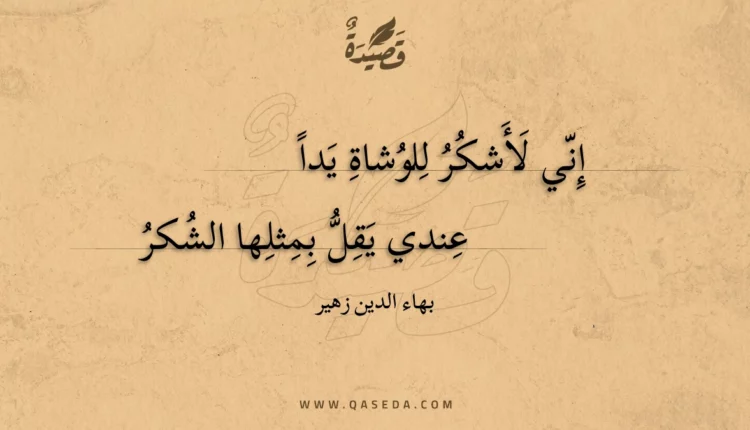 قَصِيدَةٌ
إِنّي لَأَشكُرُ لِلوُشاةِ يَداً
عِندي يَقِلُّ بِمِثلِها الشُكرُ
بهاء الدين زهير
WWW.QASEDA.COM